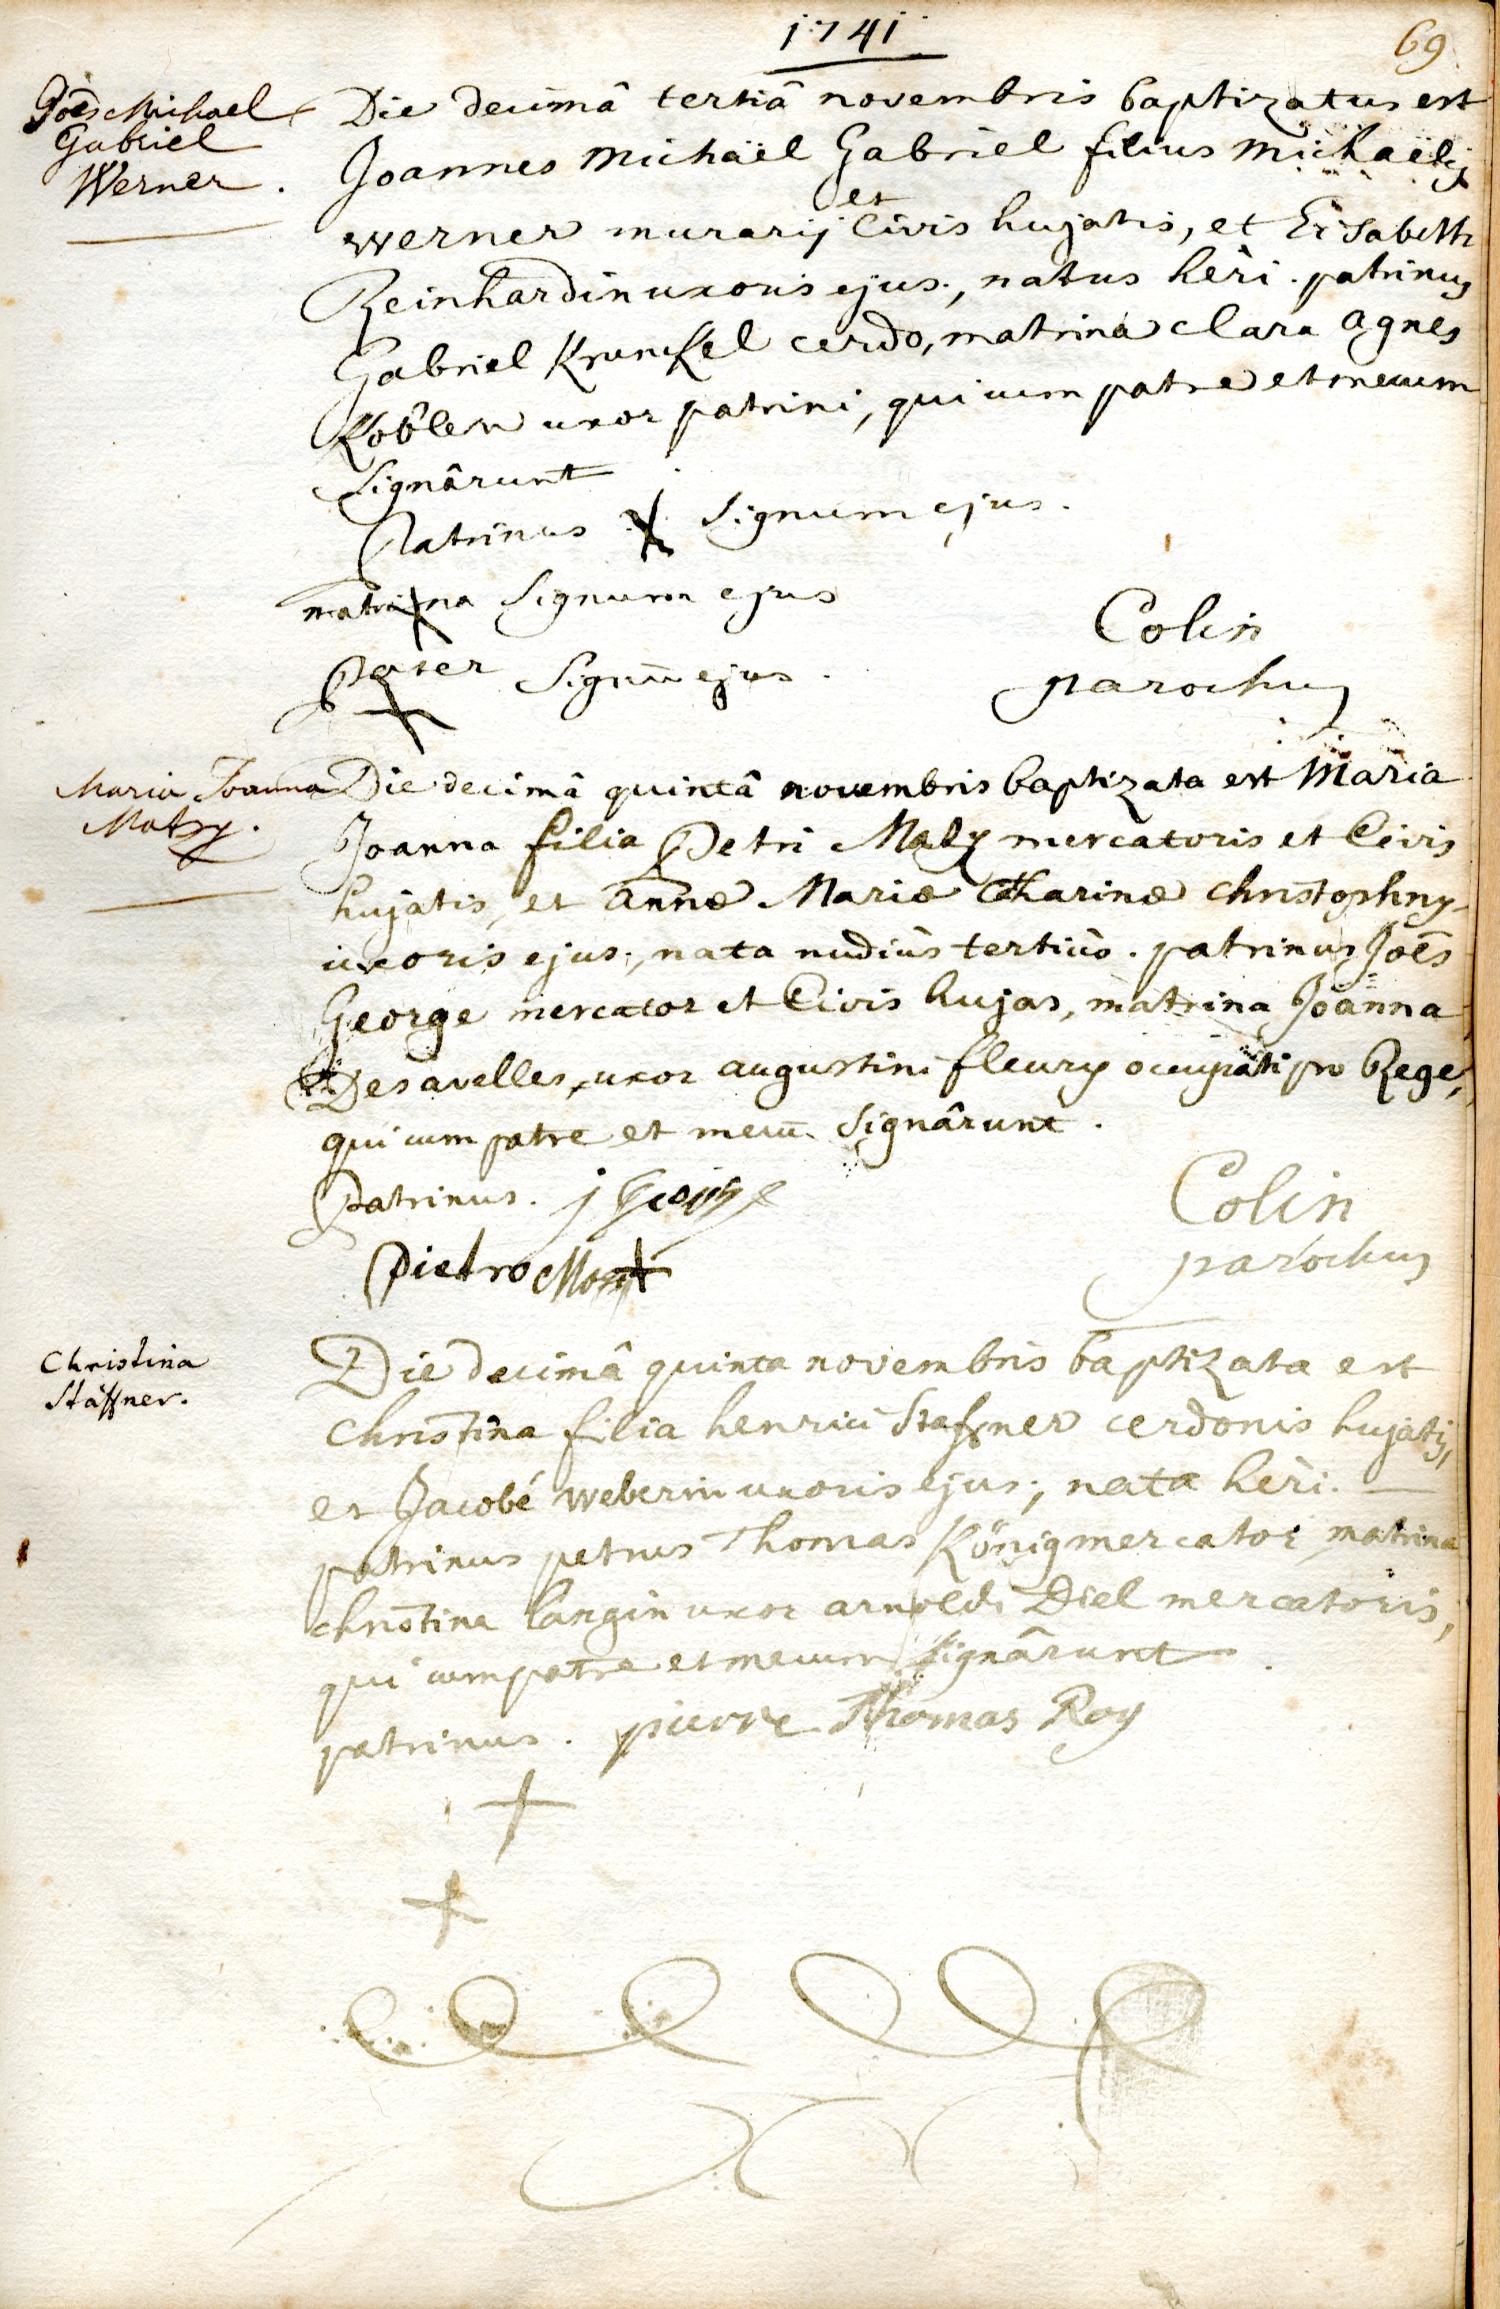 1741
69
Joēs Michael
Gabriel
Werner.
Die decimâ tertiâ novembris baptizatus est
Joannes Michäel Gabriel filius Michaëlis
et
werner murarij Civis hujatis, et Elisabeth
Reinhardin uxoris ejus., natus heri. patrinus
Gabriel Krunckel cerdo, matrina clara agnes
Koblen uxor patrini, qui cum patre et mecum
Signârunt
Patrinus X Signum ejus.
matrina Signum ejus
Pater Signū ejus.
Colin
parochus
Maria Joanna
Die decimâ quintâ novembris baptizata est Maria
Joanna filia Petri mercatoris et Civis
hujatis, et annæ Mariæ Catharinæ Christophny
uxoris ejus., nata nudiùs tertiùs. patrinus Joēs
George mercator et Civis hujas, matrina Joanna
Desavelles, uxor augustini fleury occupati pro Rege,
qui cum patre et mecū Signârunt.
Patrinus. j George
Pietro
Colin
parochus
Christina
Staffner.
Die decimâ quinta novembris baptizata est
Christina filia henrici Staffner cerdonis hujatis,
et Jacobé weberin uxoris ejus., nata heri.
patrinus petrus Thomas König mercator, matrina
christina langin uxor arnoldi Diel mercatoris,
qui cum patre et mecum Signârunt.
patrinus. pierre Thomas Roy
+
+